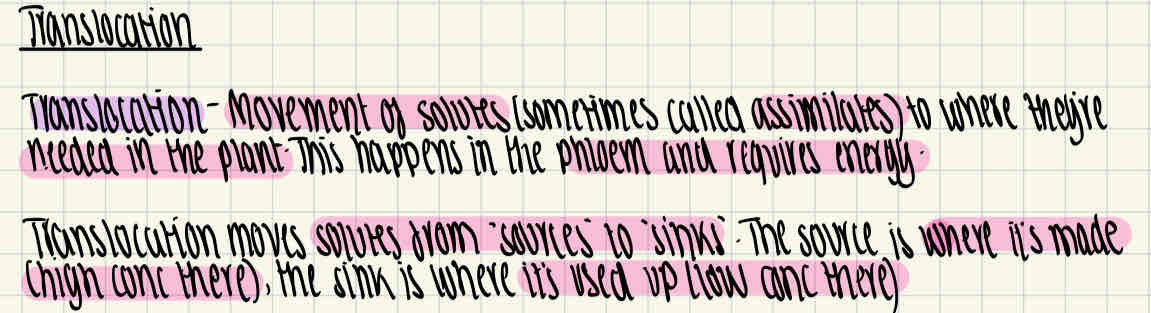 Translocation
Translocation - Movement of solutes (sometimes called assimilates) to where they're
needed in the plant. This happens in the phloem and requires energy.
Translocation moves solutes from 'sources to 'sinks'. The source is where it's made
(high conc there), the sink is where it's used up (low conc there)